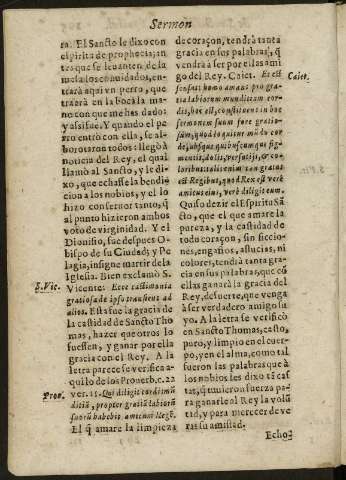 Sermon
ra. El Sancto le dixo con
espirita de prophecia; an
tes que se leuanten de la
mesa los conuidados, en-
trará aqui vn perro, que
traerá en la boca la ma-
no con que me has dado:
y assi fue. Y quando el pe
rro entro con ella, se al-
borotaron todos: llegó à
noticia del Rey, el qual
llamó al Sancto, y le di-
xo, que echasse la bendi
cion a los nobios, y el lo
hizo con fernor tanto, q̃
al punto hizieron ambos
voto de virginidad. Y el
Dionisio, fue despues O-
bispo de su Ciudad; y Pe
lagia, insigne martir de la
Iglesia. Bien exclamò S.
S. Vic.
Vicente: Ecce castimonia
gratiosa de ipso transiens ad
alios. Esta fue la gracia de
la castidad de Sancto Tho
mas, hazer que otros lo
fuessen, y ganar por ella
gracia con el Rey. A la
letra parece se verifica a-
quilo de los Prouerb. c. 22
Prou.
ver. 11. Qui diligit cordis mũ
ditiã, propter gratiã labiorũ
suorũ habebit amicum Regẽ.
El q̃ amare la limpieza
de coraçon, tendrá tanta
gracia en sus palabras, q̃
vendrá a ser por ellas ami
go del Rey. Caiet. Et est
Caiet.
sensus: homo amans pro gra-
tia labiorum munditiam cor-
dis, hoc est, constituens in hoc
sermonem suum fore gratio-
sum, quòd loquitur mũdo cor
de, absque quibuscumque fig-
mentis, dolis, versutijs, & co-
loribus: talis enim tam gratus
est Regibus, quod Rex est verè
amicus eius, verè diligit eum.
Quiso dezir el Espiritu Sã
cto, que el que amare la
pureza, y la castidad de
todo coraçon, sin ficcio-
nes, engaños, astucias, ni
colores, tendrá tanta gra-
cia en sus palabras, que cõ
ellas ganará la gracia del
Rey, de suerte, que venga
à ser verdadero amigo su
yo. A la letra se verificó
en Sancto Thomas, casto,
puro, y limpio en el cuer-
po, y en el alma, como tal
fueron las palabras que à
los nobios les dixo tã cas
tas, q̃ tuuieron fuerza pa-
ra ganarle al Rey la volũ
tad, y para merecer de ve
ras su amistad.
Echo-